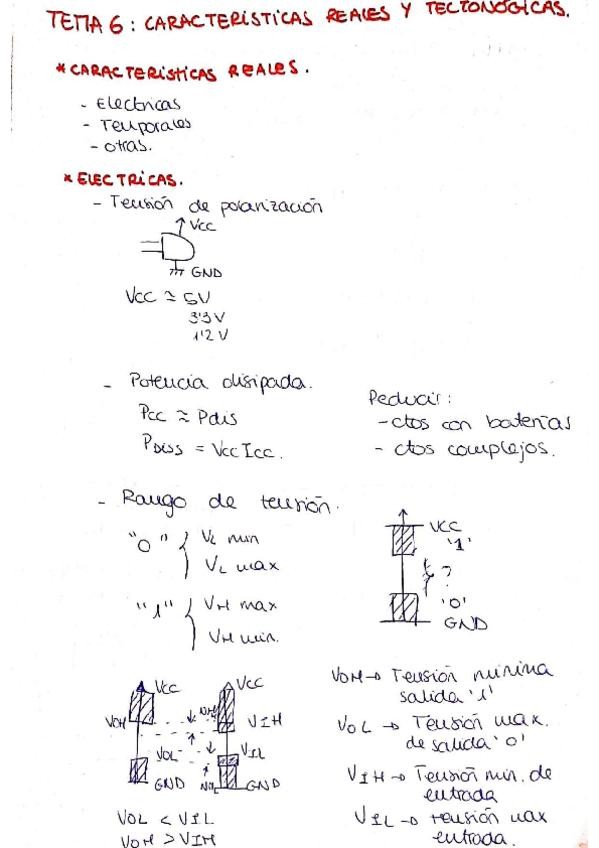 TEMA 6: CARACTERÍSTICAS REALES Y TECTONÓGICAS.
* CARACTERÍSTICAS REALES.
- Electricas
- Temporales
- otras.
* ELECTRICAS.
- Tensión de polarización
Vcc
GND
Vcc ≃ 5V
3'3 V
1'2 V
- Potencia disipada.
Pcc ≈ Pdis
PDISS = Vcc Icc.
Reducir:
- ctos con baterías
- ctos complejos.
- Rango de tensión.
"0" { VL min
VL max
"1" { VH max
VH min.
VCC
'1'
?
'0'
GND
Vcc
VOH
VOL
GND
Vcc
NMH
VIH
VIL
NML
GND
VOL < VIL
VOH > VIH
VOH → Tensión mínima
salida '1'
VOL → Tensión max.
de salida '0'
VIH → Tensión min. de
entrada
VIL → tensión max
entrada.